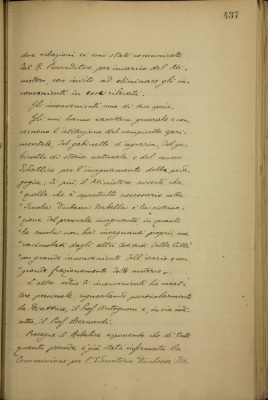 437
due relazioni ci sono state comunicate
dal R. Provveditore per incarico del Mi-
nistero, con invito ad eliminare gli in-
convenienti in esse rilevati.
Gli inconvenienti sono di due specie.
Gli uni hanno carattere generale e con-
cernono l'istituzione del campicello speri-
mentale, del gabinetto di agraria, del ga-
binetto di storia naturale e del museo
didattico per l'insegnamento della peda-
gogia; di più, il Ministero avverte che
quello che è soprattutto necessario alla
Scuola Duchessa Isabella è la sistema-
zione del personale insegnante, in quanto
la scuola non ha insegnanti proprii, ma
racimolati dagli altri istituti della città
con grande inconveniente dell'orario e con
grande frazionamento delle materie.
L'altro ordine di inconvenienti ha carat-
tere personale, riguardando particolarmente
la Direttrice, il Prof. e in via indi-
retta, il Prof. Bernardi.
Prosegue il Relatore esponendo che di tutto
quanto precede è già stata informata la
Commissione per l'Educatorio Duchessa Isa-